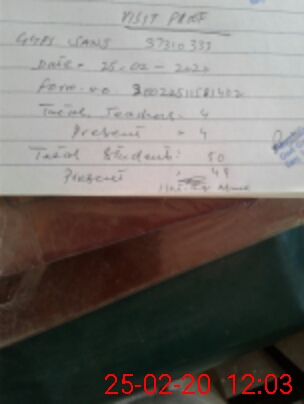 VISIT PROF
GUPS SANS 37310333
Date = 25-02-2020
Form. no. 30022511581402
Total Teachers = 4
Present = 4
Total Students: 50
Present : 49
25-02-20 12:03